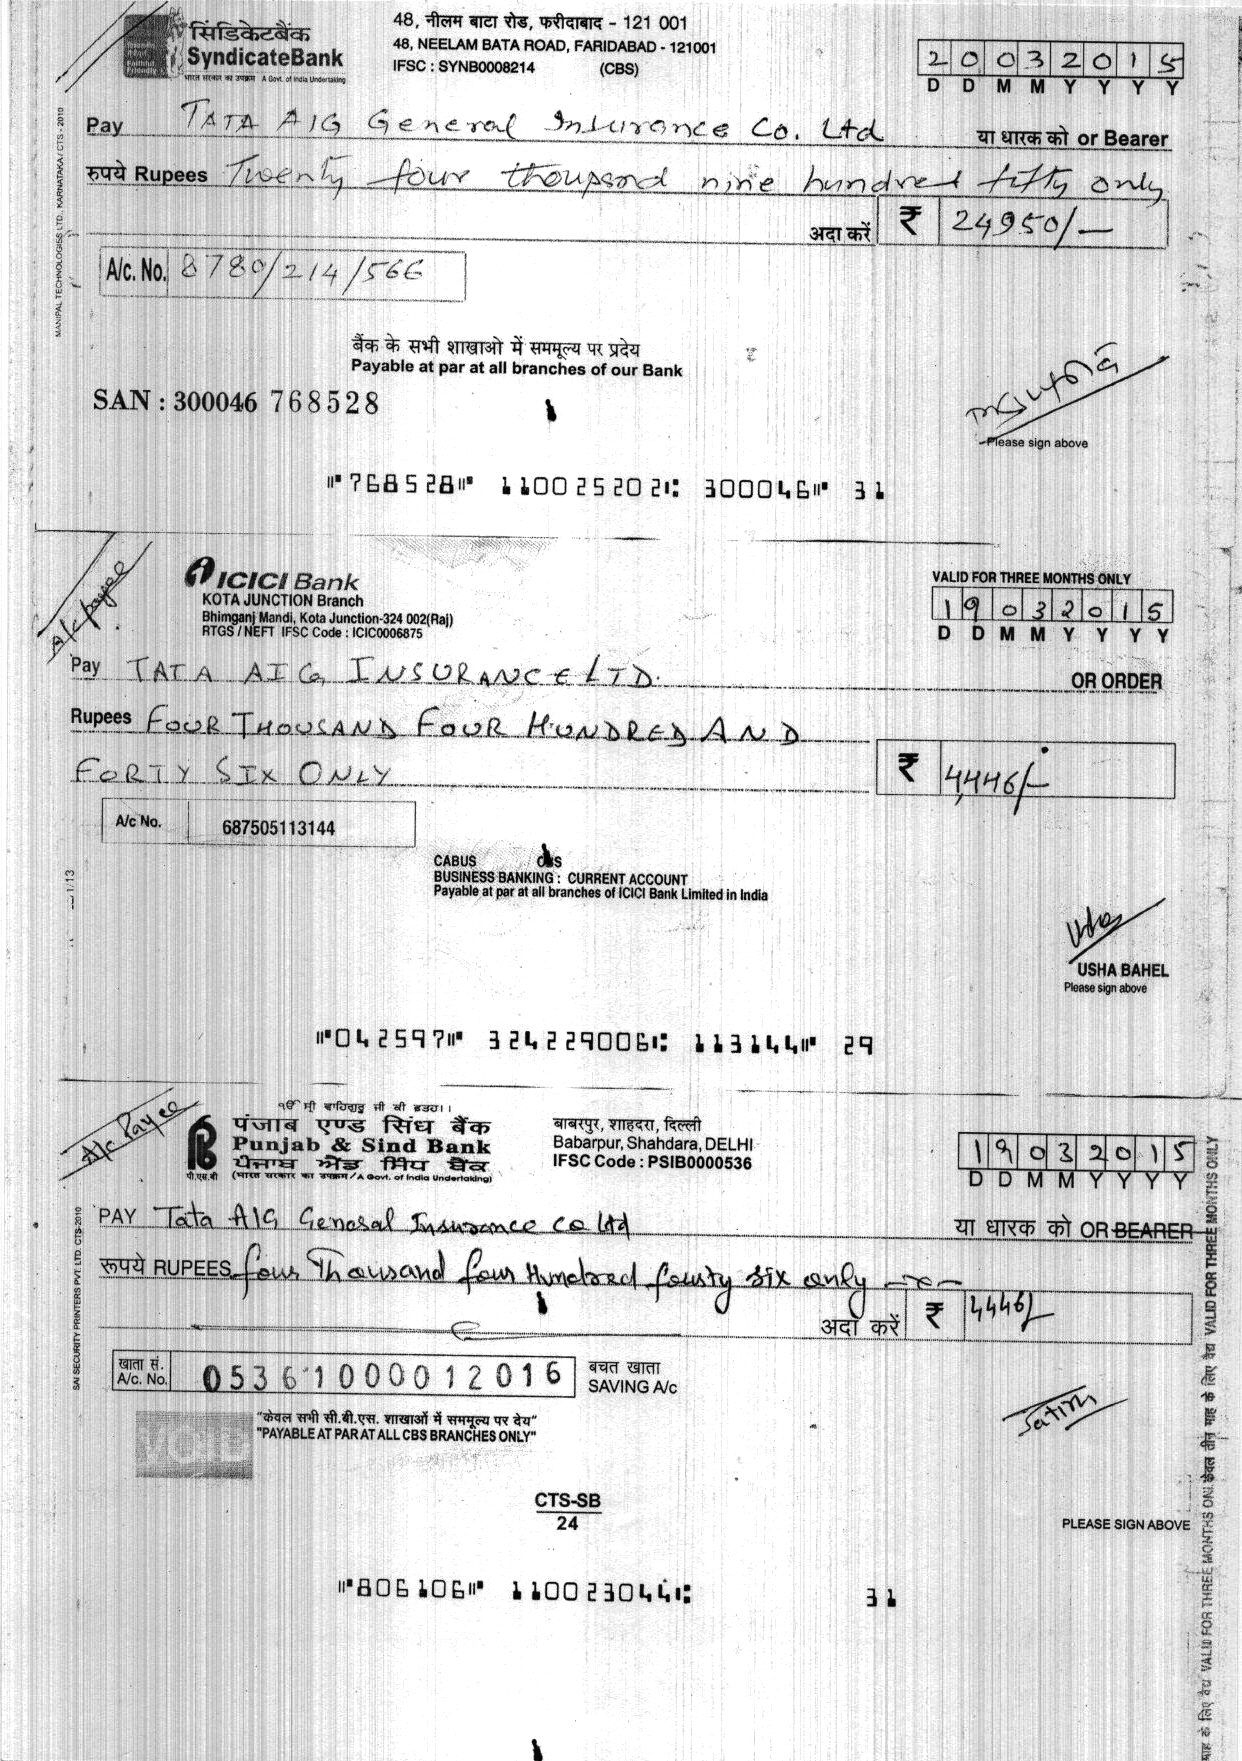 सिंडिकेटबैंक
SyndicateBank
भारत सरकार का उपक्रम A Govt. of India Undertaking
48, नीलम बाटा रोड, फरीदाबाद - 121 001
48, NEELAM BATA ROAD, FARIDABAD - 121001
IFSC : SYNB0008214 (CBS)
20032015
D D M M Y Y Y Y
Pay TATA AIG General Insurance Co. Ltd या धारक को or Bearer
रुपये Rupees Twenty four thousand nine hundred fifty only
अदा करें ₹ 24950/-
A/c. No. 8780/214/566
बैंक के सभी शाखाओ में सममूल्य पर प्रदेय
Payable at par at all branches of our Bank
SAN : 300046 768528
Please sign above
⑈768528⑈ 110025202⑆ 300046⑈ 31
MANIPAL TECHNOLOGIES LTD., KARNATAKA / CTS - 2010
A/c payee
ICICI Bank
KOTA JUNCTION Branch
Bhimganj Mandi, Kota Junction-324 002(Raj)
RTGS / NEFT IFSC Code : ICIC0006875
VALID FOR THREE MONTHS ONLY
19032015
D D M M Y Y Y Y
Pay TATA AIG INSURANCE LTD.
OR ORDER
Rupees FOUR THOUSAND FOUR HUNDRED AND
FORTY SIX ONLY ₹ 4,446/-
A/c No. 687505113144
CABUS
BUSINESS BANKING : CURRENT ACCOUNT
Payable at par at all branches of ICICI Bank Limited in India
Usha
USHA BAHEL
Please sign above
⑈042597⑈ 324229006⑆ 113144⑈ 29
A/c Payee
ੴ ਸ੍ਰੀ ਵਾਹਿਗੁਰੂ ਜੀ ਕੀ ਫਤਹ।।
पंजाब एण्ड सिंध बैंक
Punjab & Sind Bank
ਪੰਜਾਬ ਐਂਡ ਸਿੰਧ ਬੈਂਕ
(भारत सरकार का उपक्रम/A Govt. of India Undertaking)
पी.एस.बी
बाबरपुर, शाहदरा, दिल्ली
Babarpur, Shahdara, DELHI
IFSC Code : PSIB0000536
19032015
D D M M Y Y Y Y
PAY Tata AIG General Insurance Co Ltd या धारक को OR BEARER
रूपये RUPEES four Thousand four Hundred fourty six only -x-
अदा करें ₹ 4446/-
खाता सं.
A/c. No. 05361000012016
बचत खाता
SAVING A/c
"केवल सभी सी.बी.एस. शाखाओं में सममूल्य पर देय"
"PAYABLE AT PAR AT ALL CBS BRANCHES ONLY"
VOID
CTS-SB
24
PLEASE SIGN ABOVE
⑈806106⑈ 110023044⑆ 31
SAI SECURITY PRINTERS PVT. LTD. CTS-2010
केवल तीन माह के लिए वैद्य VALID FOR THREE MONTHS ONLY
माह के लिए वैद्य VALID FOR THREE MONTHS